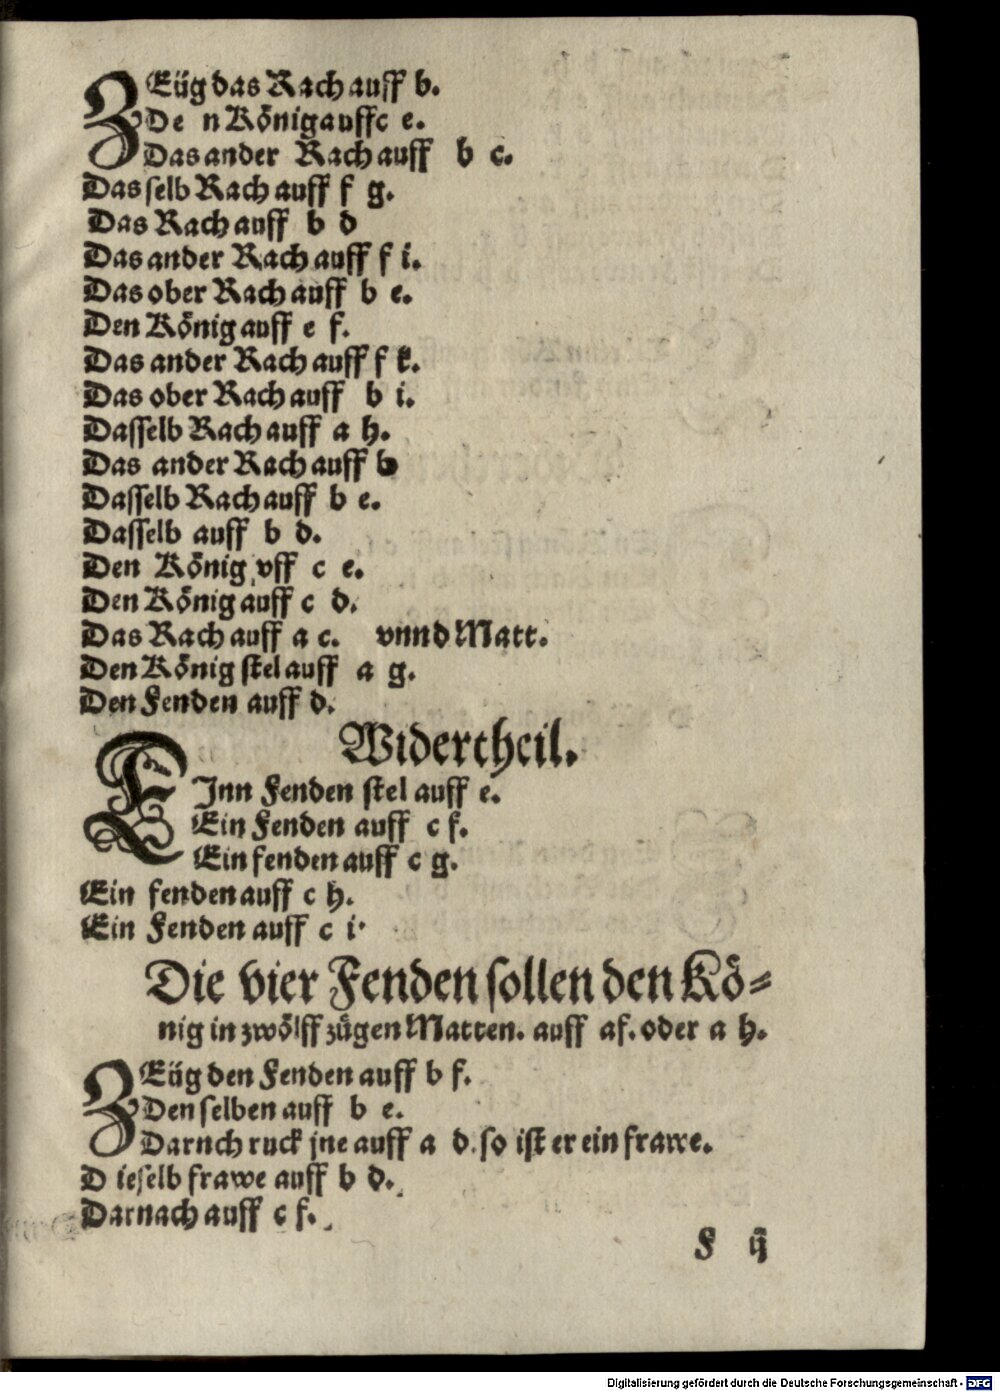 ZEüg das Rach auff b.
De n König auffc e.
Das ander Rach auff b c.
Das selb Rach auff f g.
Das Rach auff b d
Das ander Rach auff f i.
Das ober Rach auff b e.
Den König auff e f.
Das ander Rach auff f k.
Das ober Rach auff b i.
Dasselb Rach auff a h.
Das ander Rach auff b
Dasselb Rach auff b e.
Dasselb auff b d.
Den König vff c e.
Den König auff c d.
Das Rach auff a c. vnnd Matt.
Den König stel auff a g.
Den Fenden auff d.
Widertheil.
EInn Fenden stel auff e.
Ein Fenden auff c f.
Ein fenden auff c g.
Ein fenden auff c h.
Ein Fenden auff c i.
Die vier Fenden sollen den Kö⸗
nig in zwölff zügen Matten. auff af. oder a h.
ZEüg den Fenden auff b f.
Den selben auff b e.
Darnch ruck jne auff a d. so ist er ein frawe.
D ieselb frawe auff b d.
Darnach auff c f.
F ij
Digitalisierung gefördert durch die Deutsche Forschungsgemeinschaft - DFG